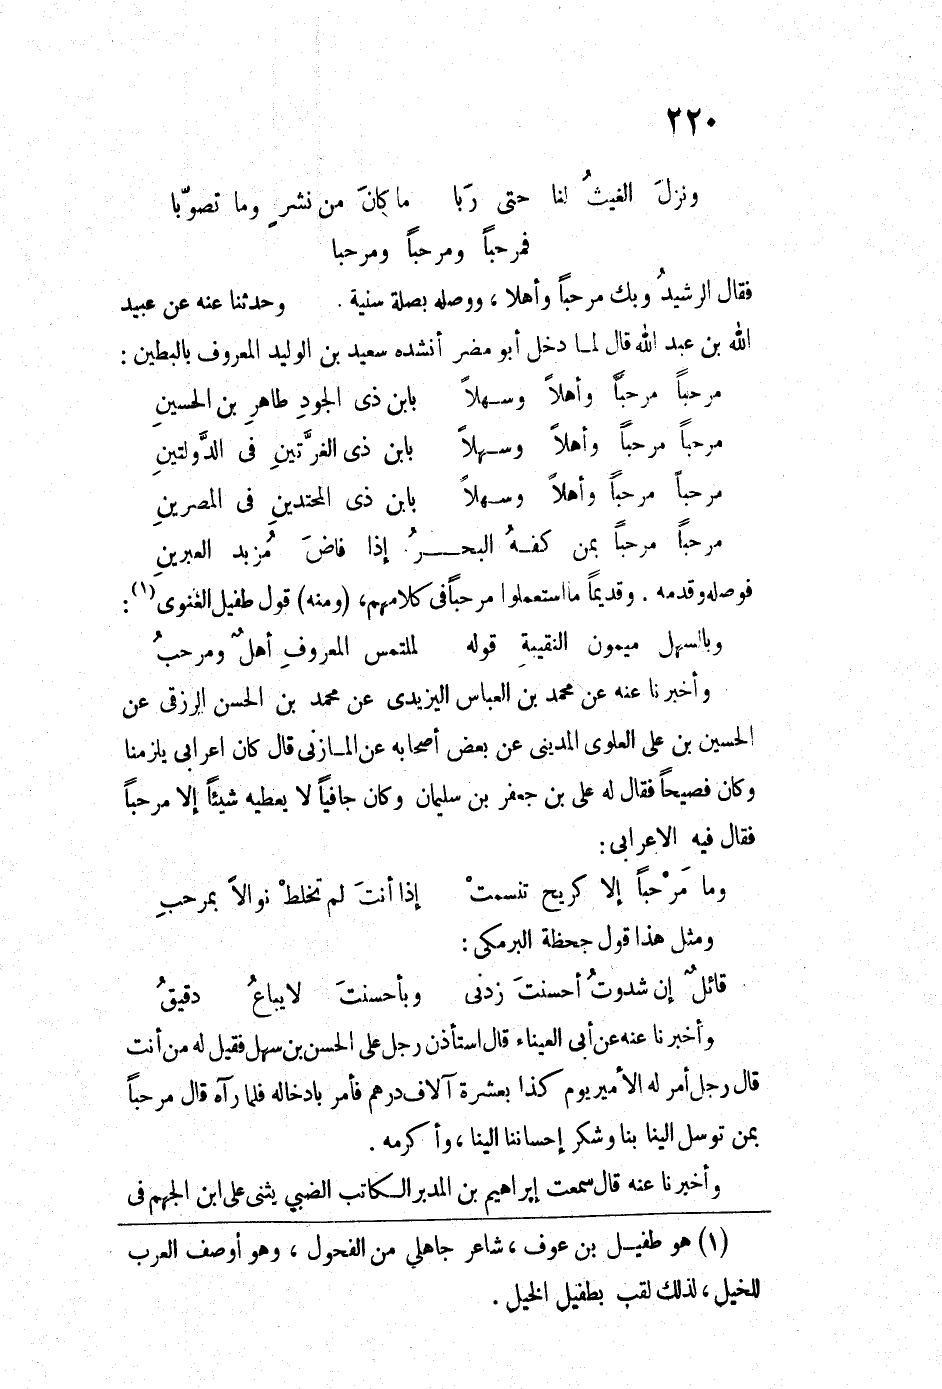 ٢٢٠
ونزلَ الغيثُ لنا حتى رَبا ما كانَ من نشرٍ وما تصوّبا
فمرحباً ومرحباً ومرحبا
فقال الرشيدُ وبك مرحباً وأهلا ، ووصله بصلة سنية . وحدثنا عنه عن عبيد
الله بن عبد الله قال لما دخل أبو مضر أنشده سعيد بن الوليد المعروف بالبطين :
مرحباً مرحبًّا وأهلاً وسهلاً بابن ذى الجودِ طاهرِ بن الحسينِ
مرحباً مرحباً وأهلاً وسهلاً بابن ذى الغرَّتينِ فى الدَّولتينِ
مرحباً مرحباً وأهلاً وسهلاً بابن ذى المحتدينِ فى المصرينِ
مرحباً مرحباً بمن كفهُ البحرُ إذا فاضَ مُزبد العبرينِ
فوصله وقدمه . وقديماً ما استعملوا مرحباً فى كلامهم، (ومنه) قول طفيل الغنوى (١) :
وبالسهل ميمون النقيبةِ قوله لملتمس المعروفِ أهلٌ ومرحبُ
وأخبرنا عنه عن محمد بن العباس اليزيدى عن محمد بن الحسن الرزقى عن
الحسين بن على العلوى المدينى عن بعض أصحابه عن المازنى قال كان اعرابى يلزمنا
وكان فصيحاً فقال له على بن جعفر بن سليمان وكان جافياً لا يعطيه شيئاً إلا مرحباً
فقال فيه الاعرابى :
وما مَرْحباً إلا كريح تنسمتْ إذا أنتَ لم تخلطْ نوالاً بمرحبِ
ومثل هذا قول جحظة البرمكى :
قائلٌ إن شدوتُ أحسنتَ زدنى وبأحسنتَ لايباعُ دقيقُ
وأخبرنا عنه عن أبى العيناء قال استأذن رجل على الحسن بن سهل فقيل له من أنت
قال رجل أمر له الأمير يوم كذا بعشرة آلاف درهم فأمر بادخاله فلما رآه قال مرحباً
بمن توسل الينا بنا وشكر إحساننا الينا ، وأكرمه .
وأخبرنا عنه قال سمعت إبراهيم بن المدبر الكاتب الضبي يثنى على ابن الجهم فى
(١) هو طفيل بن عوف ، شاعر جاهلي من الفحول ، وهو أوصف العرب
للخيل ، لذلك لقب بطفيل الخيل .